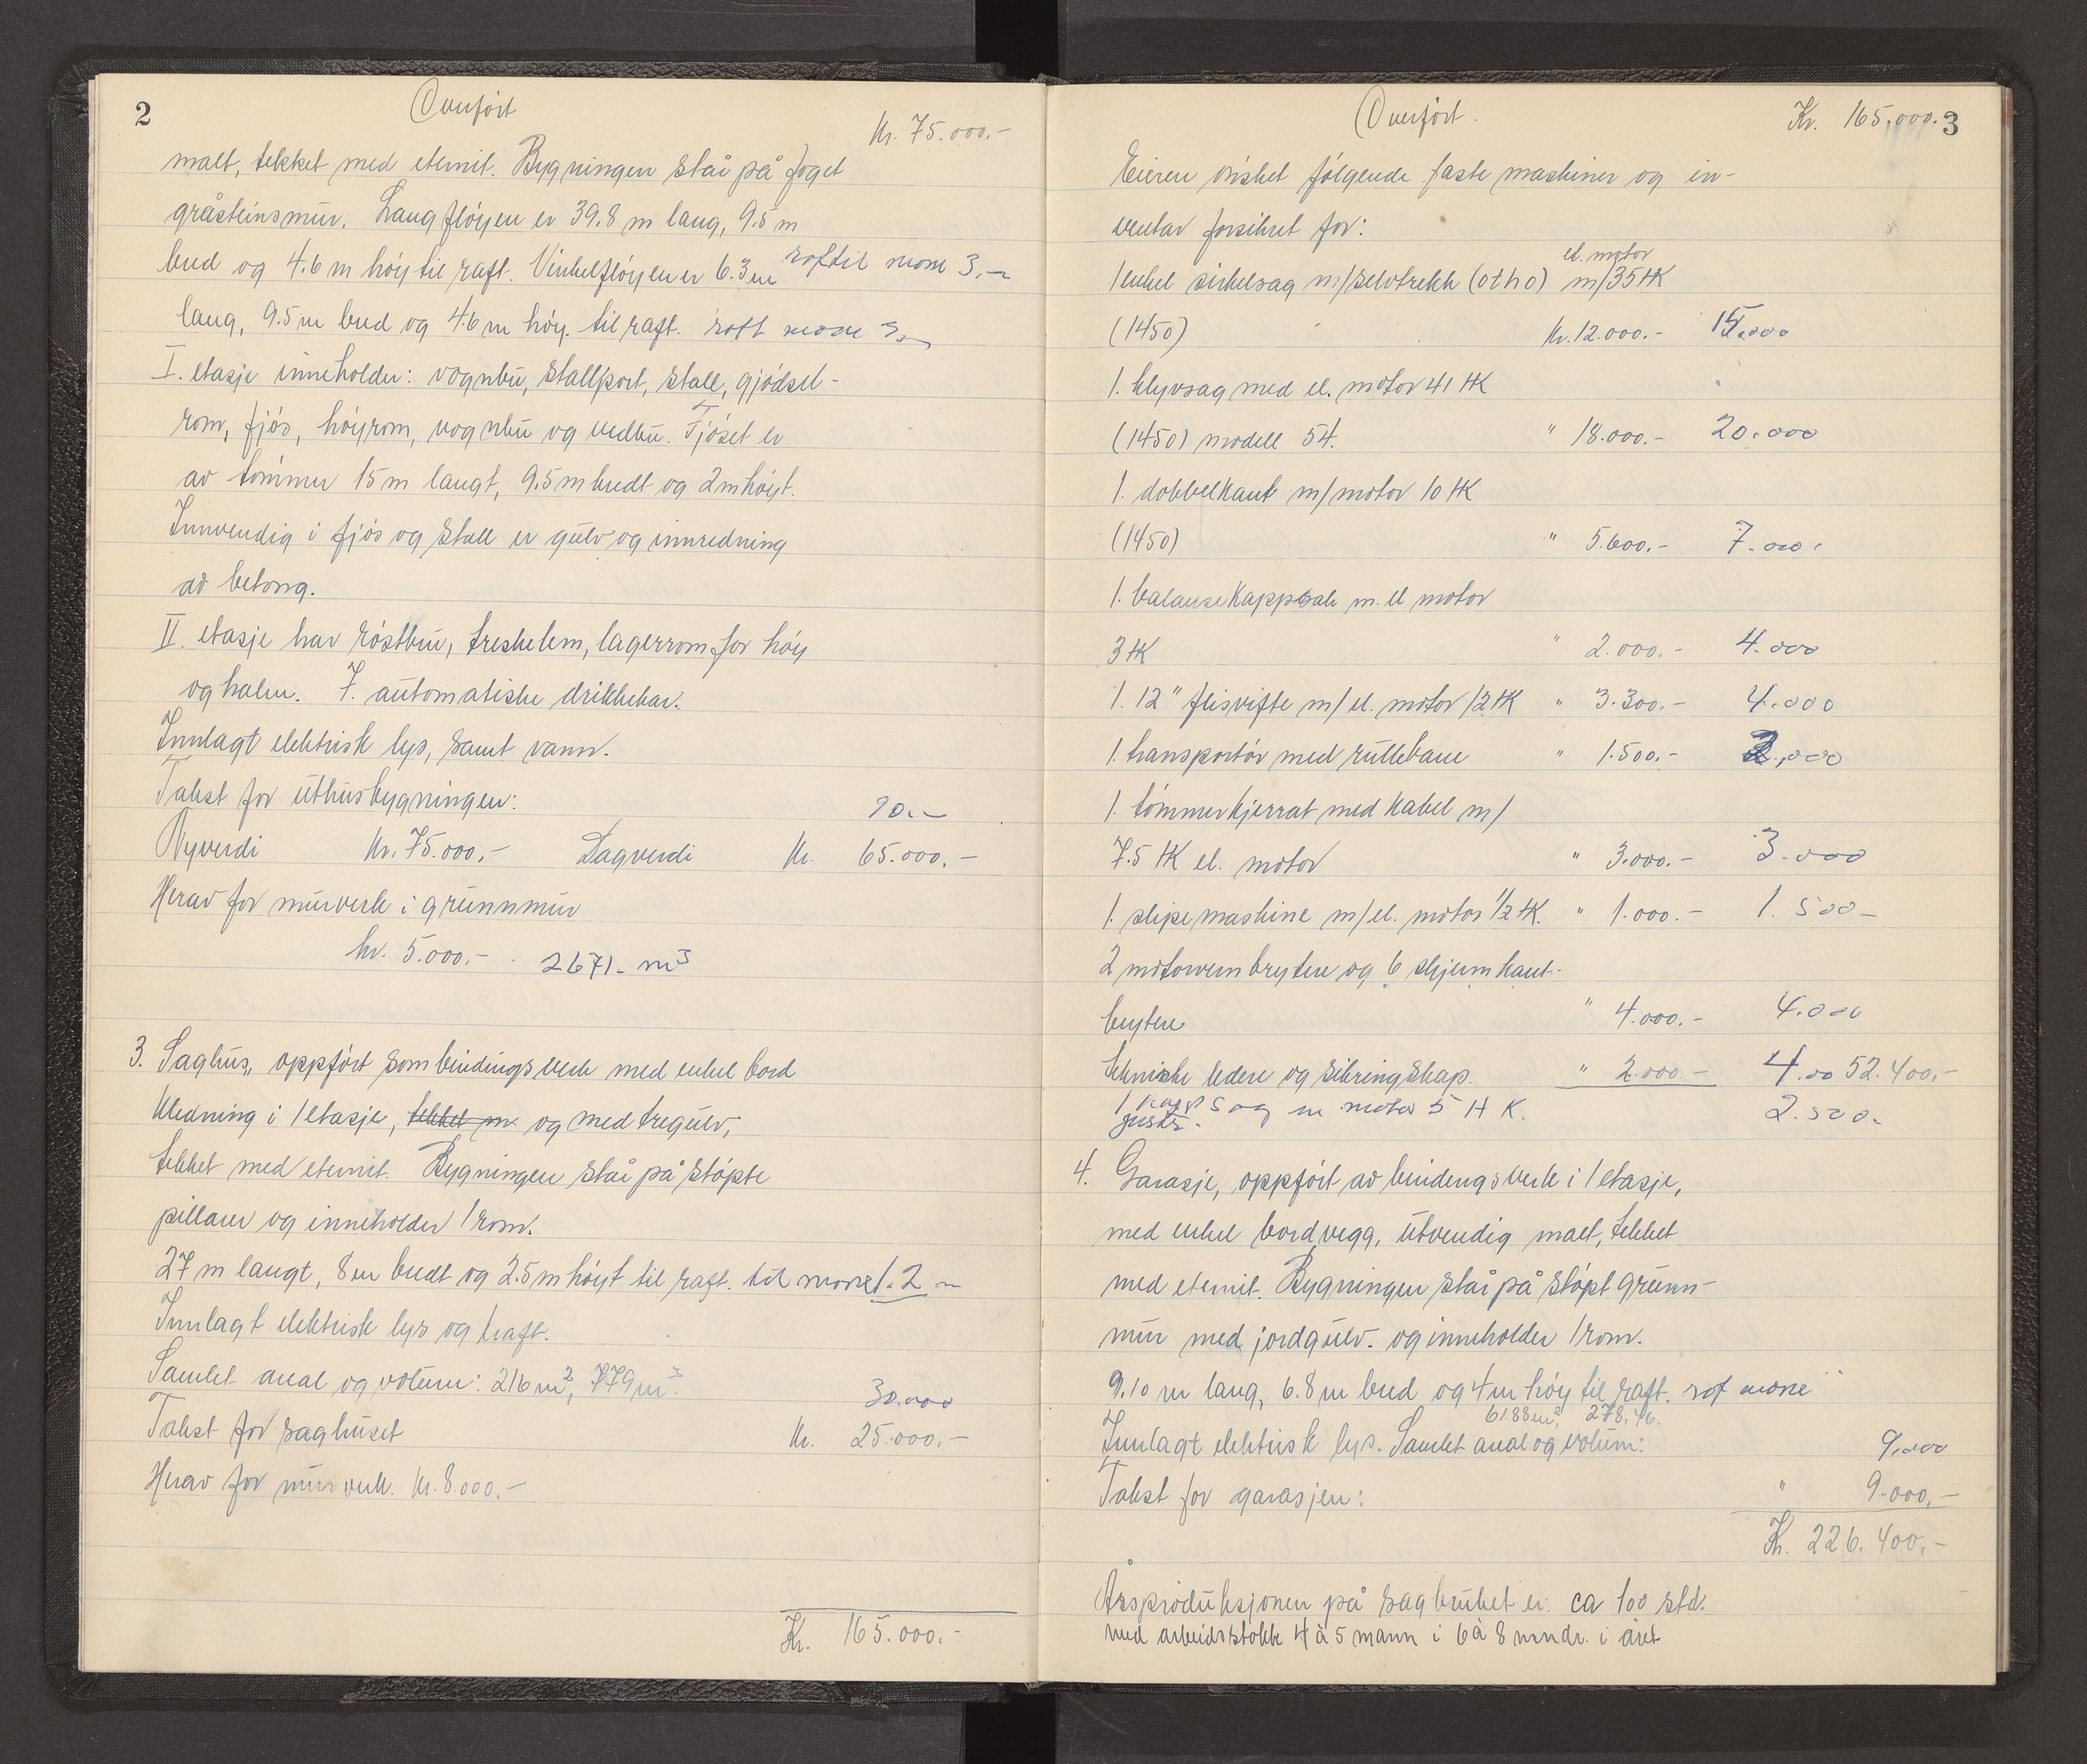 2
Overført
Kr. 75.000.-
malt, tekket med eternit. Bygningen står på foget
gråsteinsmur. Langfløyen er 39.8 m lang, 9.5 m
bred og 4.6 m høy til raft. Vinkelfløyen er 6.3 m raft til møne 3,-
lang, 9.5 m bred og 4.6 m høy til raft. raft møne 3,-
I. etasje inneholder: vognbu, stallport, stall, gjødsel-
rom, fjøs, høyrom, vognbu og vedbu. Fjøset er
av tømmer 15 m langt, 9.5 m bredt og 2 m høyt.
Innvendig i fjøs og stall er gulv og innredning
av betong.
II. etasje har røstbu, treskelem, lagerrom for høy
og halm. 7. automatiske drikkekar.
Innlagt elektrisk lys, samt vann.
Takst for uthusbygningen:
90.-
Nyverdi Kr. 75.000,- Dagverdi Kr. 65.000,-
Herav for murverk i grunnmur
kr. 5.000,- 2671.- m³
3. Saghus, oppført som bindingsverk med enkel bord
kledning i 1 etasje, tekket m og med tregulv,
tekket med eternit. Bygningen står på støpte
pillarer og inneholder 1 rom.
27 m langt, 8 m bredt og 2.5 m høyt til raft. til møne 1.2 -
Innlagt elektrisk lys og kraft.
Samlet areal og volum: 216 m², 779 m³.
30.000
Takst for saghuset Kr. 25.000,-
Herav for murverk. Kr. 8.000,-
Kr. 165.000.-
Overført. Kr. 165.000.- 3
Eieren ønsket følgende faste maskiner og in-
ventar forsikret for:
el. motor
1 enkel sirkelsag m/selvtrekk (otho) m/35 HK
(1450) Kr. 12.000.- 15.000
1. klyvsag med el. motor 41 HK
(1450) modell 54. " 18.000.- 20.000
1. dobbelkant m/motor 10 HK
(1450) " 5.600.- 7.000.
1. balansekappsak m. el motor
3 HK " 2.000.- 4.000
1. 12" flisvifte m/ el. motor 12 HK " 3.300.- 4.000
1. transportør med rullebane " 1.500.- 2.000
1. tømmerkjerrat med kabel m/
7.5 HK el. motor " 3.000.- 3.000
1. slipemaskine m/el. motor 1/2 HK. " 1.000.- 1.500-
2 motorvernbrytere og 6 skjermkant-
brytere " 4.000.- 4.000
Tekniske ledere og sikringskap. " 2.000.- 4.00 52.400.-
1 kapp sag m motor 5 HK. 2.500.
juster.
4. Garasje, oppført av bindingsverk i 1 etasje,
med enkel bordvegg, utvendig malt, tekket
med eternit. Bygningen står på støpt grunn-
mur med jordgulv. og inneholder 1 rom.
9.10 m lang, 6.8 m bred og 4 m høy til raft. rof møne
61.88 m², 278,46.
Innlagt elektrisk lys. Samlet areal og volum:
9.000
Takst for garasjen: " 9.000,-
Kr. 226.400.-
Årsproduksjonen på sagbruket er: ca 100 std.
med arbeidsstokk 4 à 5 mann i 6 à 8 mndr. i året